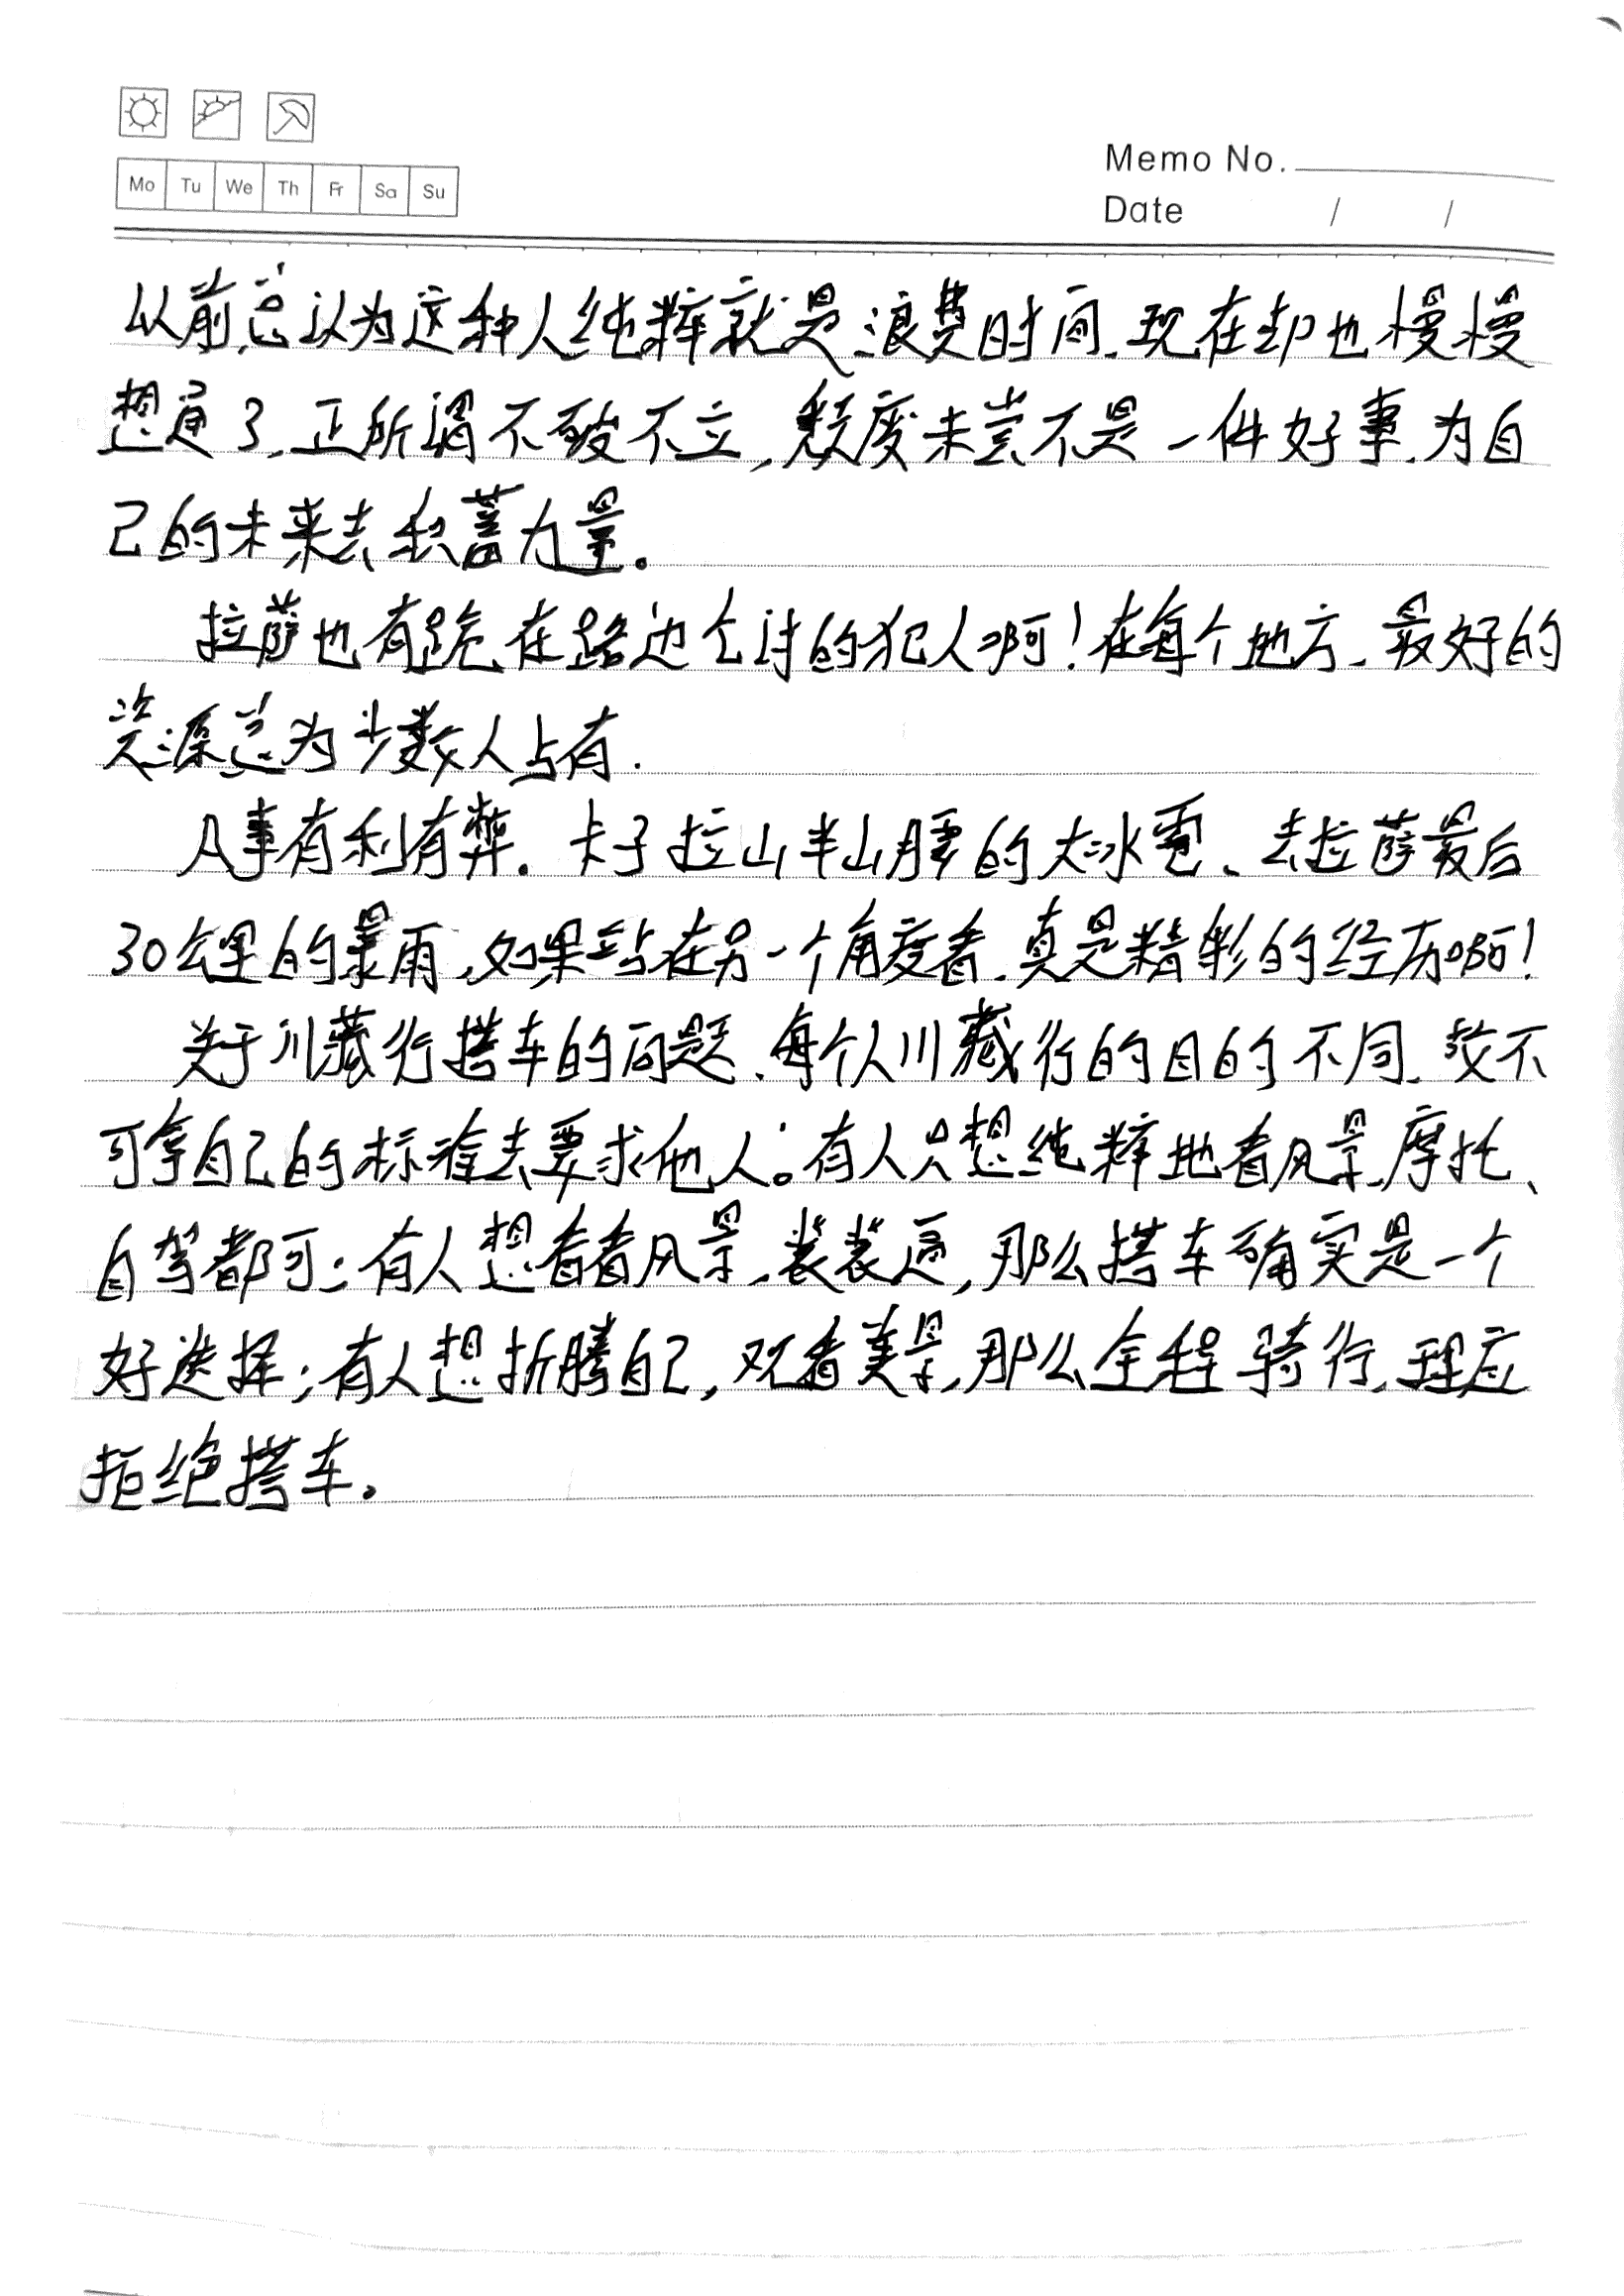 Memo No.
Mo Tu We Th Fr Sa Su
Date / /
从前总认为这种人纯粹就是浪费时间.现在却也慢慢
想通了.正所谓不破不立,颓废未尝不是一件好事.为自
己的未来去积蓄力量。
拉萨也有跪在路边乞讨的犯人啊!在每个地方.最好的
资源总为少数人占有.
凡事有利有弊.卡子拉山半山腰的大冰雹、去拉萨最后
30公里的暴雨,如果站在另一个角度看.真是精彩的经历啊!
关于川藏行搭车的问题.每个人川藏行的目的不同.故不
可拿自己的标准去要求他人。有人只想纯粹地看风景.摩托、
自驾都可;有人想看看风景.装装逼,那么搭车确实是一个
好选择;有人想折腾自己,观看美景,那么全程骑行.理应
拒绝搭车。